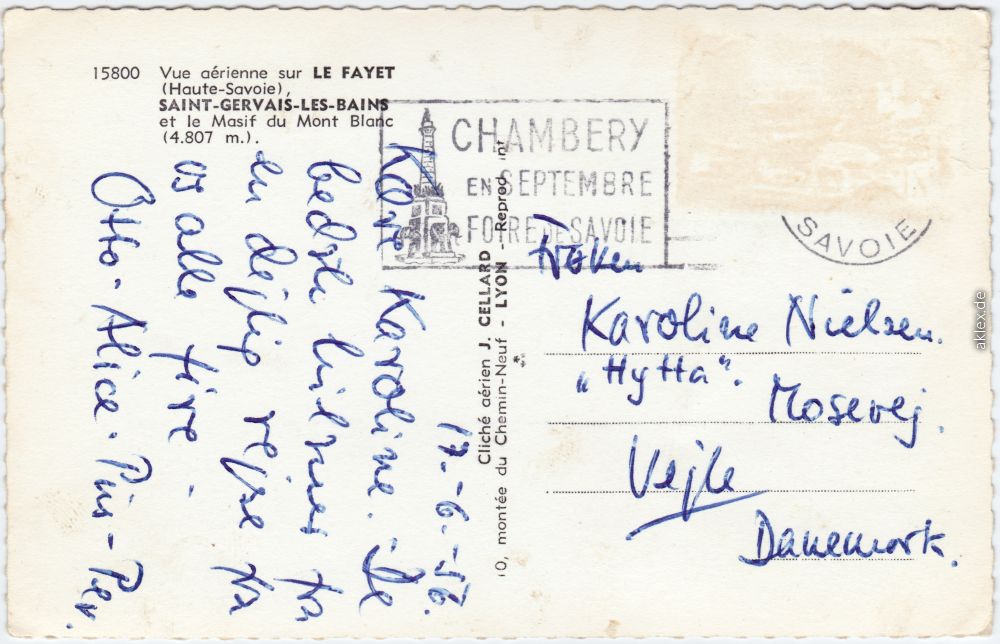 15800 Vue aérienne sur LE FAYET
(Haute-Savoie),
SAINT-GERVAIS-LES-BAINS
et le Masif du Mont Blanc
(4.807 m.).
CHAMBERY
EN SEPTEMBRE
FOIRE DE SAVOIE
SAVOIE
17.-6.-56.
Kære Karoline. De
bedste hilsner fra
en dejlig rejse fra
os alle fire.
Otto - Alice - Piis - Per.
Cliché aérien J. CELLARD
10, montée du Chemin-Neuf - LYON - Reprod. int
Frøken
Karoline Nielsen.
"Hytta".
Mosevej.
Vejle
Danemark.
aklex.de